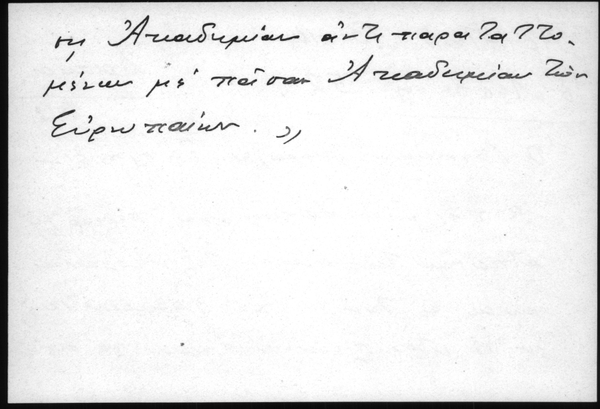 ση Ἀκαδημίαν ἀντιπαρατατто-
μένην μὲ πᾶσαν Ἀκαδημίαν τῶν
Εὐρωπαίων. »